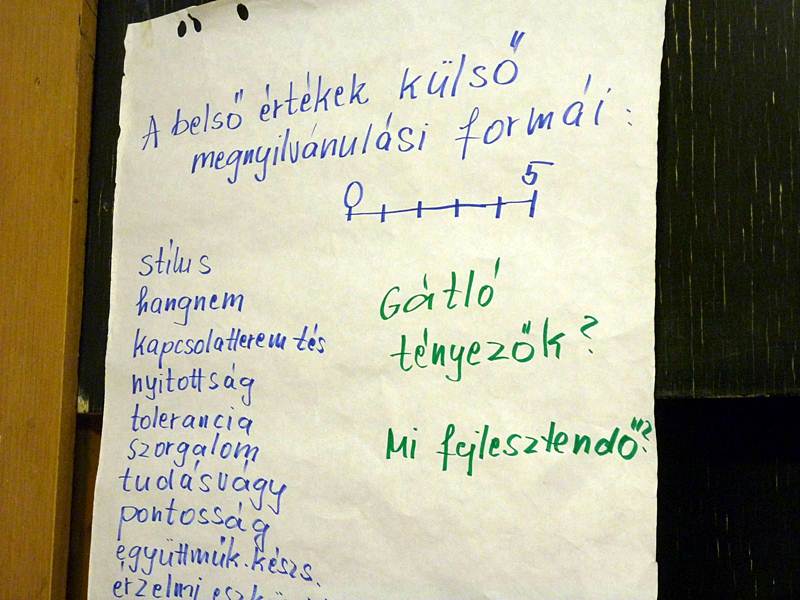 A belső értékek külső
megnyilvánulási formái:
0 5
stílus
hangnem
kapcsolatteremtés
nyitottság
tolerancia
szorgalom
tudásvágy
pontosság
együttműk. készs.
érzelmi
Gátló
tényezők?
Mi fejlesztendő?